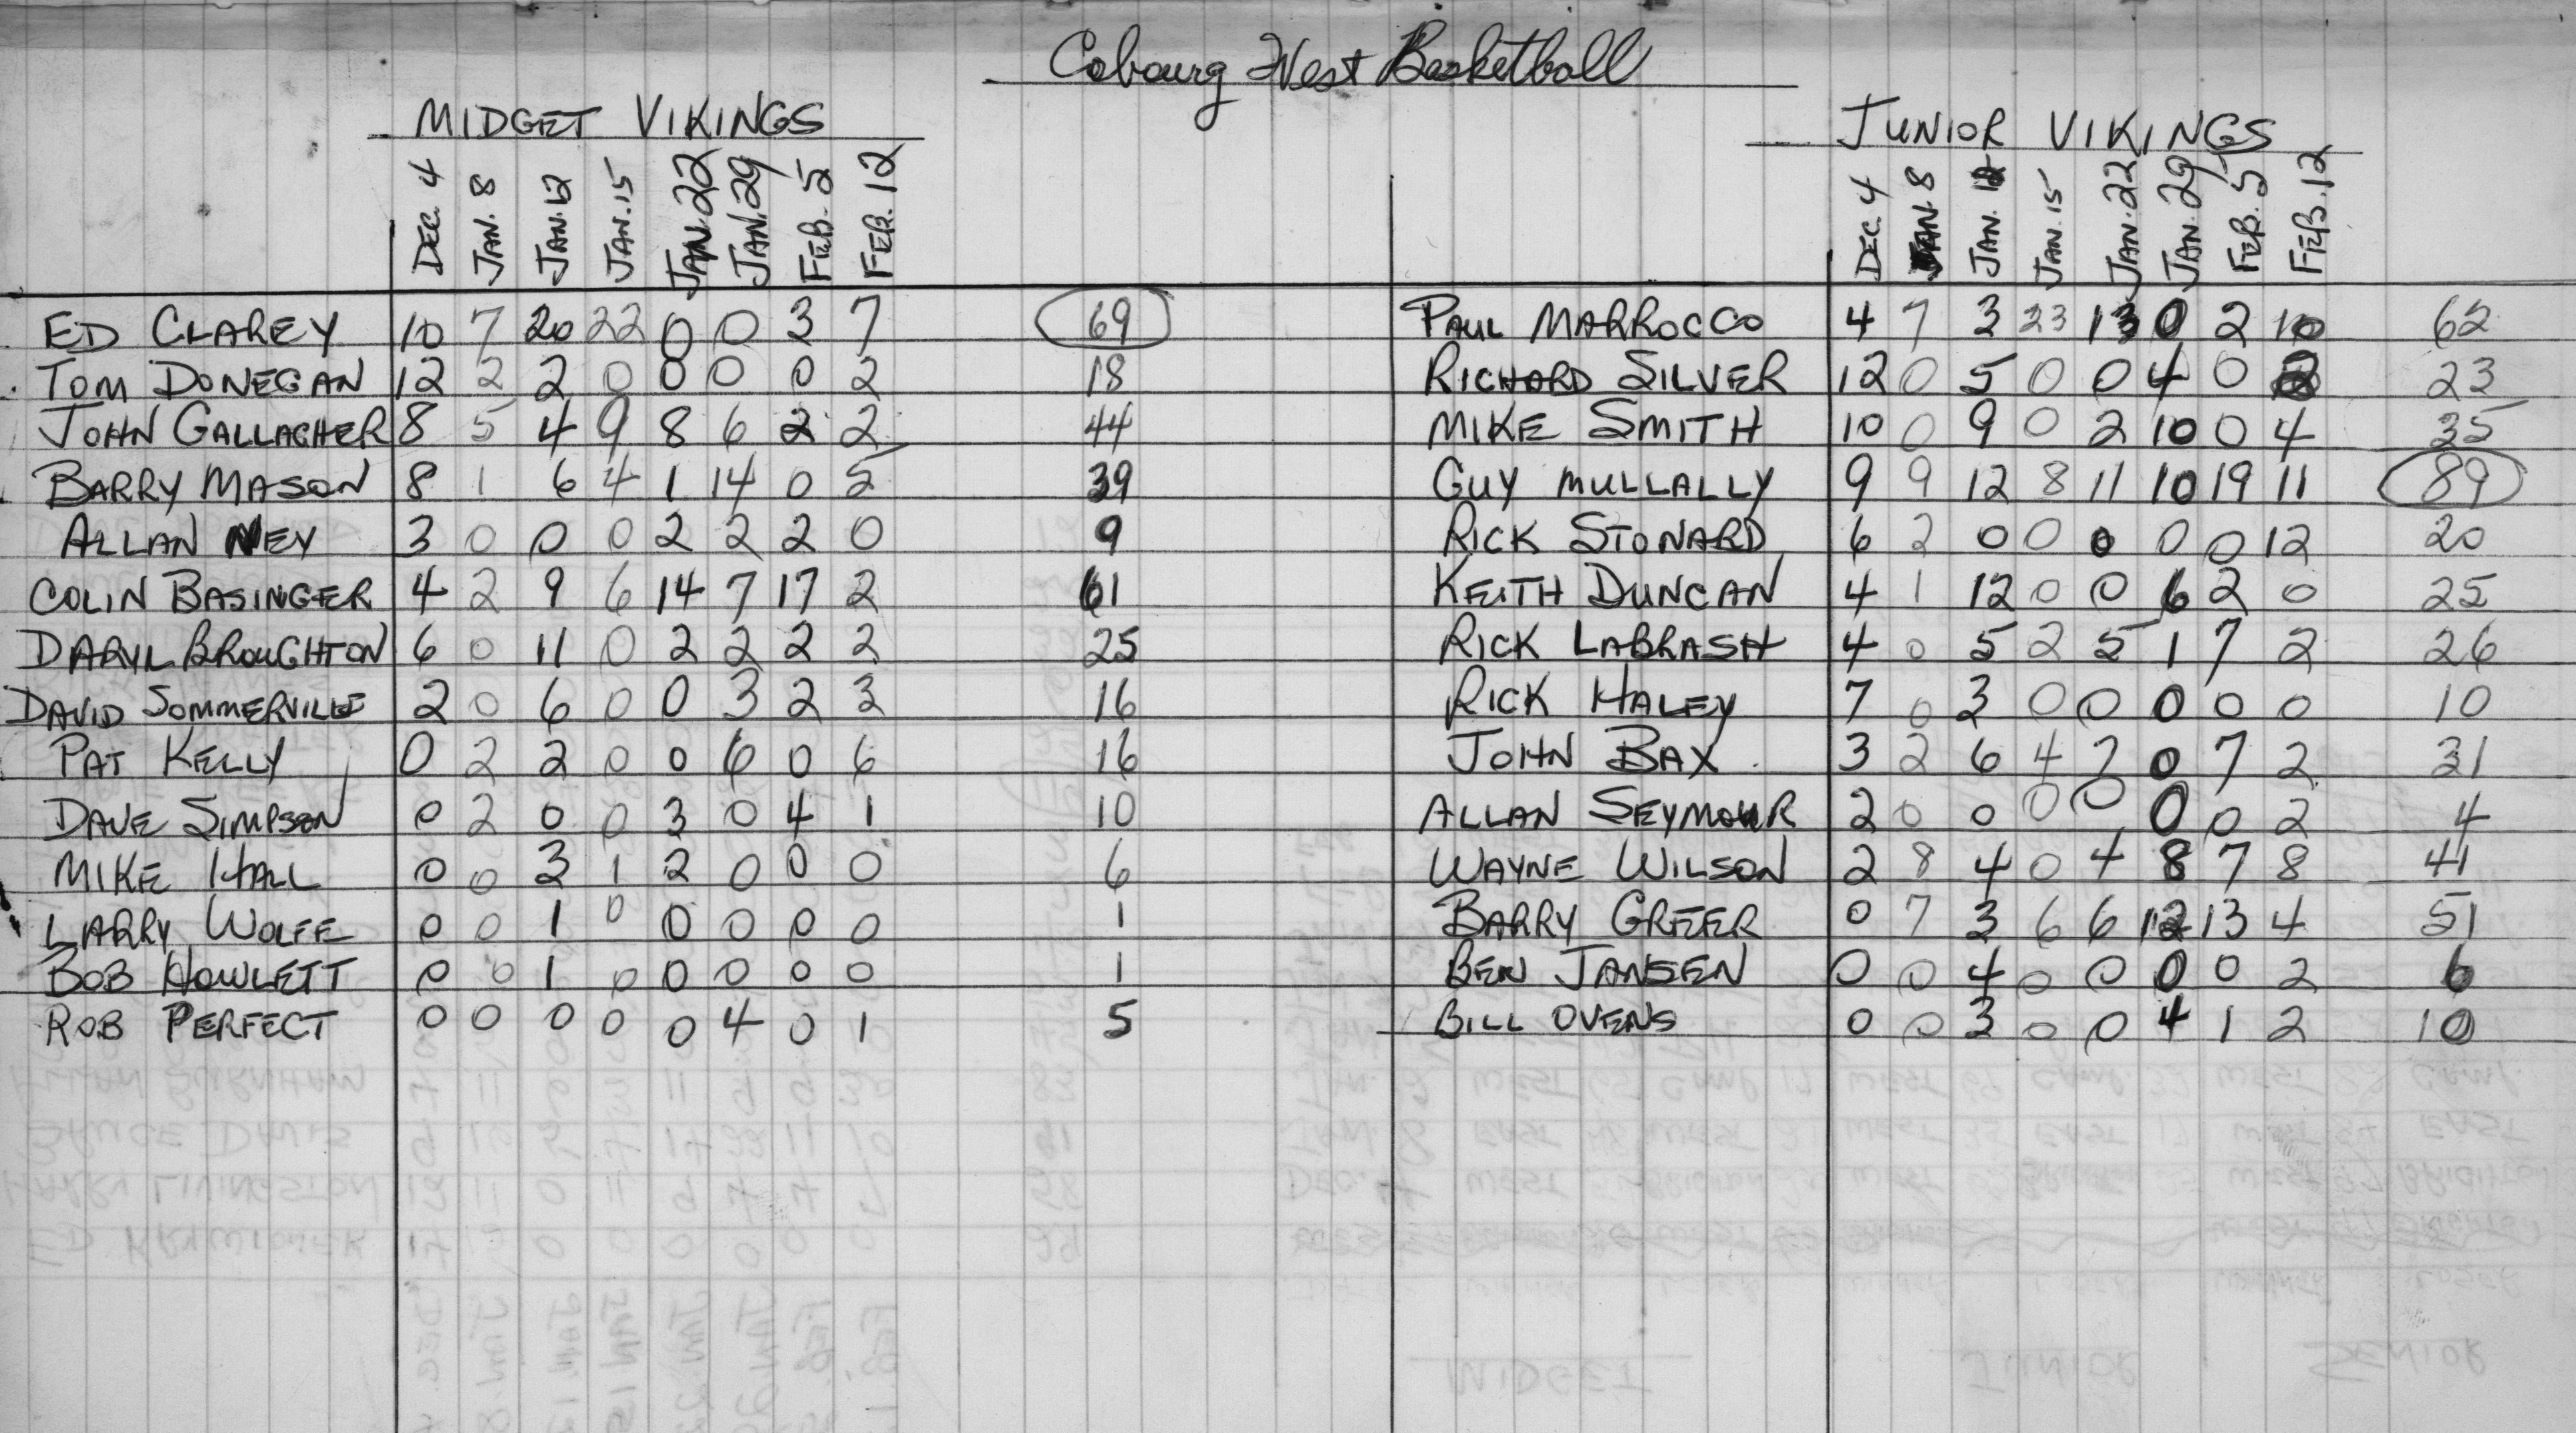 Cobourg West Basketball
MIDGET VIKINGS
JUNIOR VIKINGS
DEC. 4 JAN. 8 JAN. 12 JAN. 15 JAN. 22 JAN. 29 FEB. 5 FEB. 12
DEC. 4 JAN. 8 JAN. 12 JAN. 15 JAN. 22 JAN. 29 FEB. 5 FEB. 12
ED CLAREY 10 7 20 22 0 0 3 7 69
PAUL MARROCCO 4 7 3 23 13 0 2 10 62
TOM DONEGAN 12 2 2 0 0 0 0 2 18
RICHARD SILVER 12 0 5 0 0 4 0 2 23
JOHN GALLAGHER 8 5 4 9 8 6 2 2 44
MIKE SMITH 10 0 9 0 2 10 0 4 35
BARRY MASON 8 1 6 4 1 14 0 5 39
GUY MULLALLY 9 9 12 8 11 10 19 11 89
ALLAN NEY 3 0 0 0 2 2 2 0 9
RICK STONARD 6 2 0 0 0 0 0 12 20
COLIN BASINGER 4 2 9 6 14 7 17 2 61
KEITH DUNCAN 4 1 12 0 0 6 2 0 25
DARYL BROUGHTON 6 0 11 0 2 2 2 2 25
RICK LABRASH 4 0 5 2 5 1 7 2 26
DAVID SOMMERVILLE 2 0 6 0 0 3 2 3 16
RICK HALEY 7 0 3 0 0 0 0 0 10
PAT KELLY 0 2 2 0 0 6 0 6 16
JOHN BAX 3 2 6 4 7 0 7 2 31
DAVE SIMPSON 0 2 0 0 3 0 4 1 10
ALLAN SEYMOUR 2 0 0 0 0 0 0 2 4
MIKE HALL 0 0 3 1 2 0 0 0 6
WAYNE WILSON 2 8 4 0 4 8 7 8 41
LARRY WOLFE 0 0 1 0 0 0 0 0 1
BARRY GREER 0 7 3 6 6 12 13 4 51
BOB HOWLETT 0 0 1 0 0 0 0 0 1
BEN JANSEN 0 0 4 0 0 0 0 2 6
ROB PERFECT 0 0 0 0 0 4 0 1 5
BILL OVENS 0 0 3 0 0 4 1 2 10